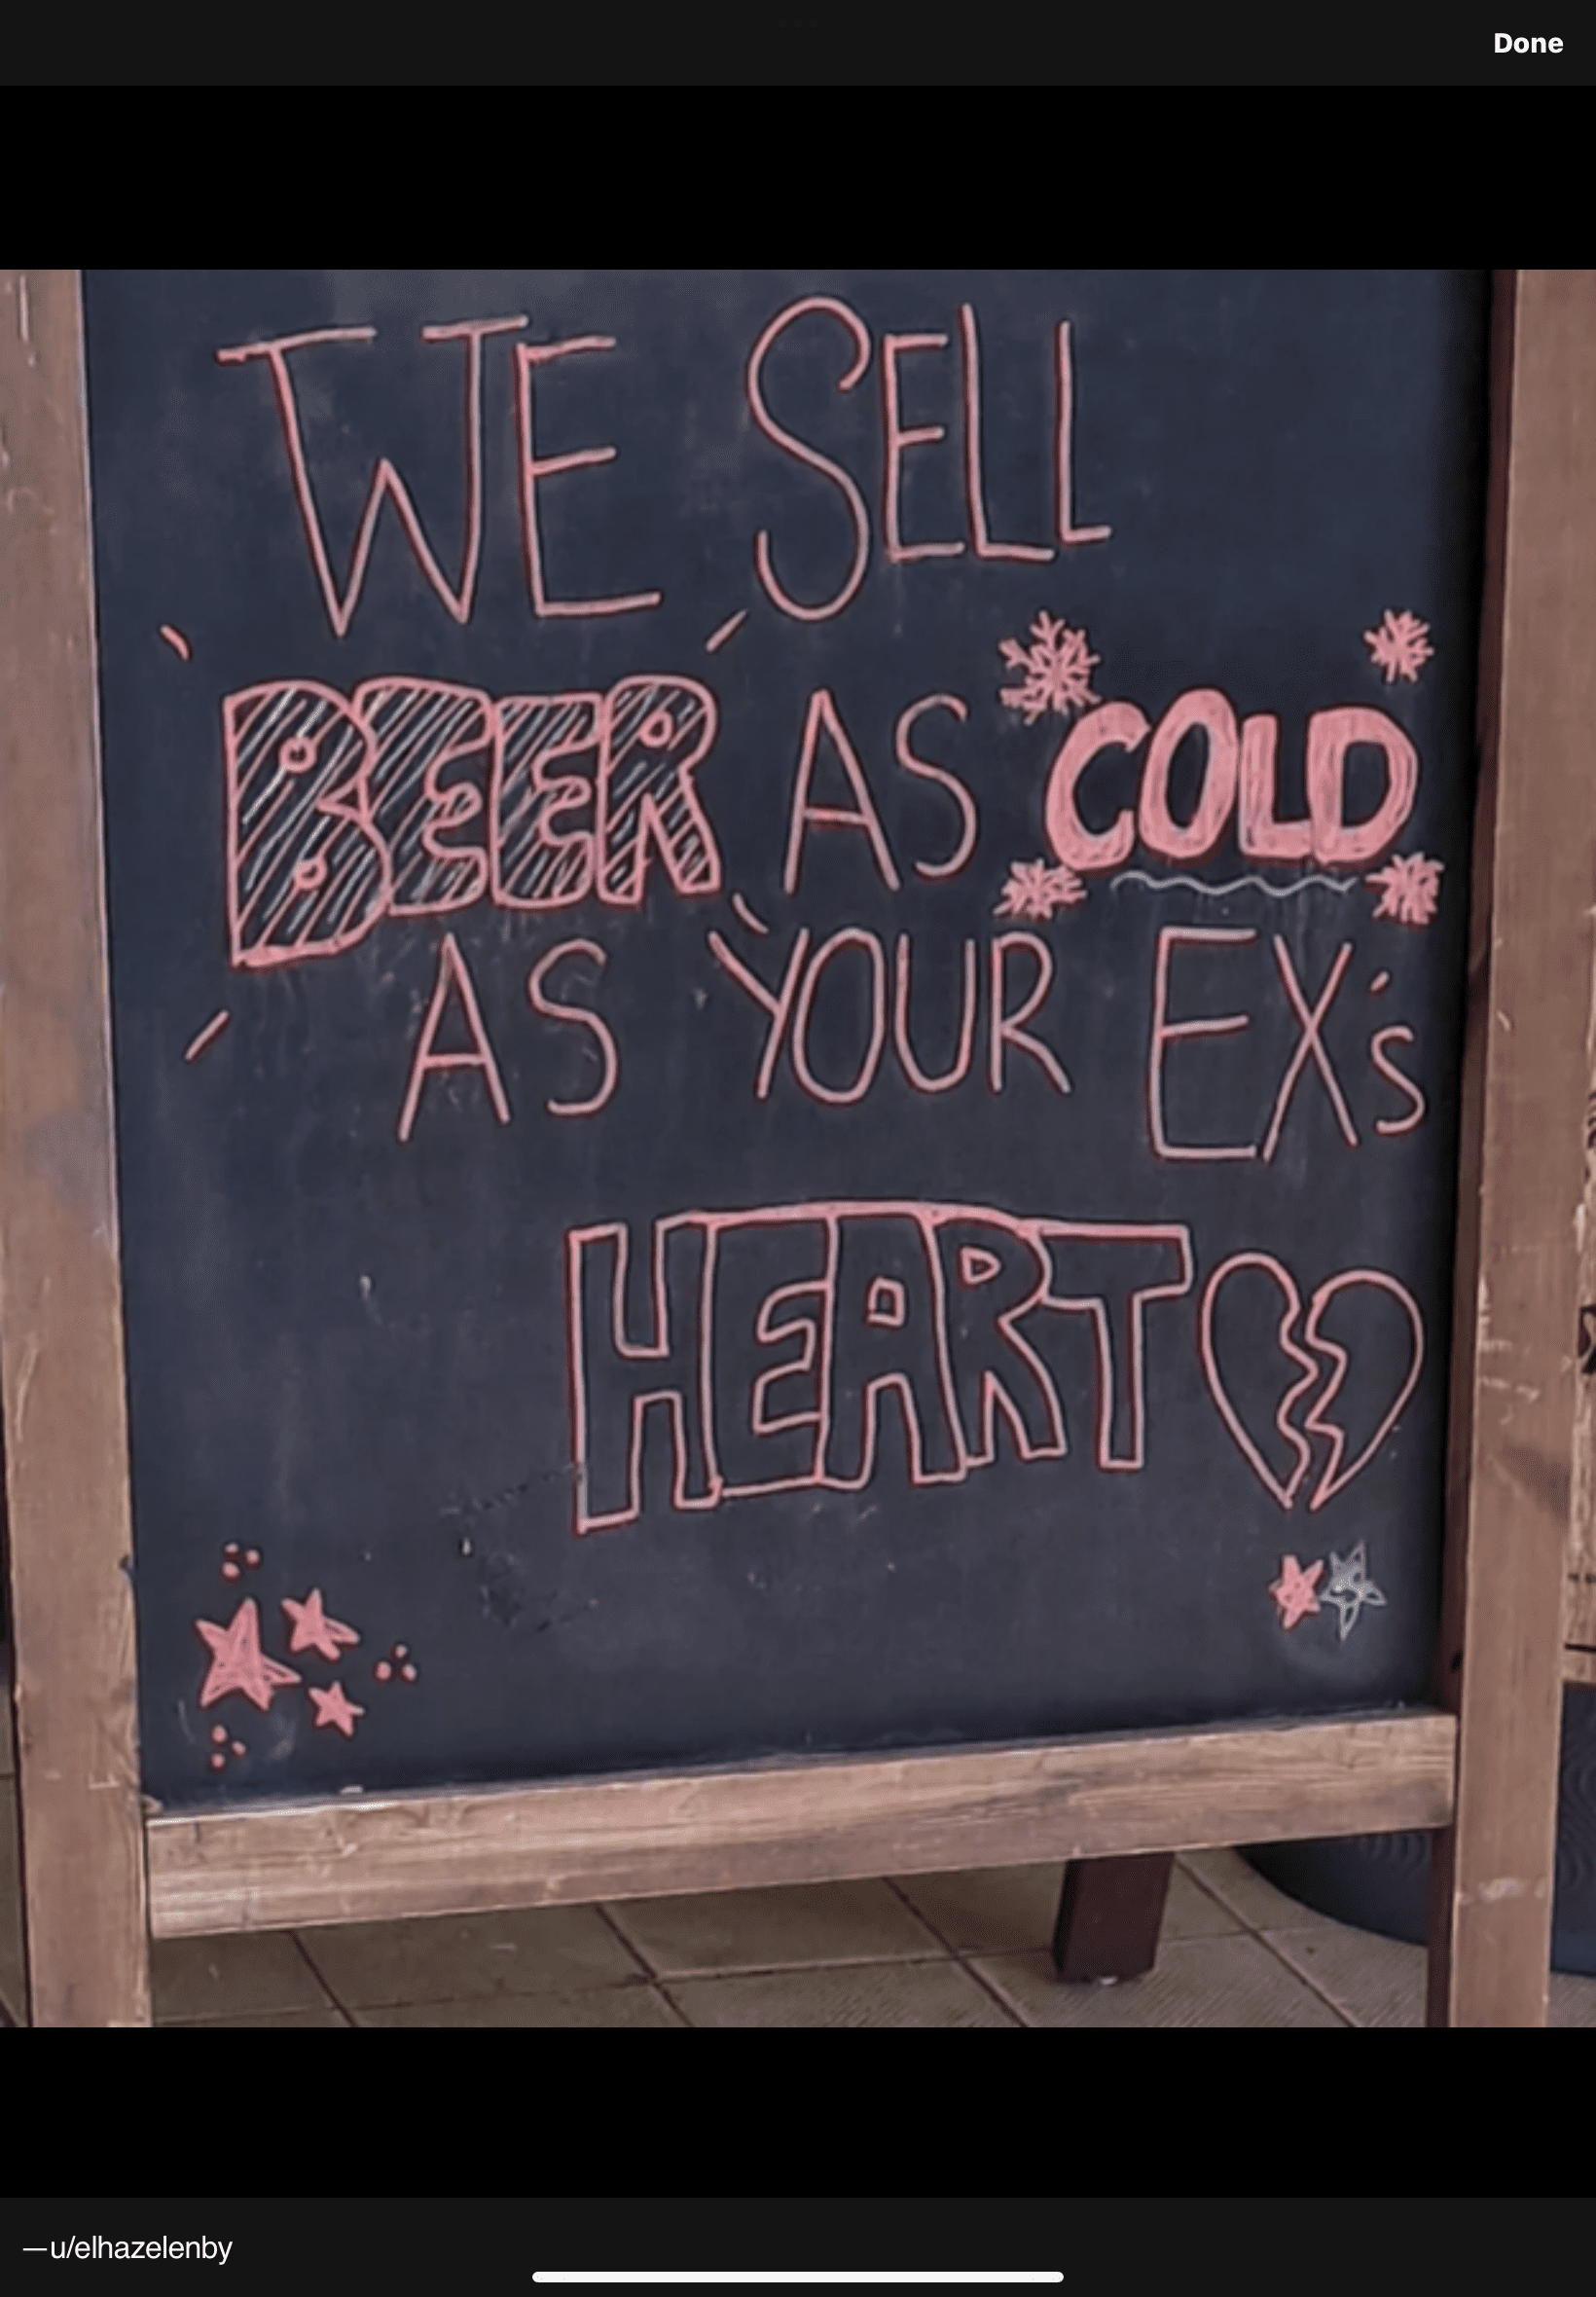 Done
WE SELL
BEER AS COLD
AS YOUR EX's
HEART
—u/elhazelenby